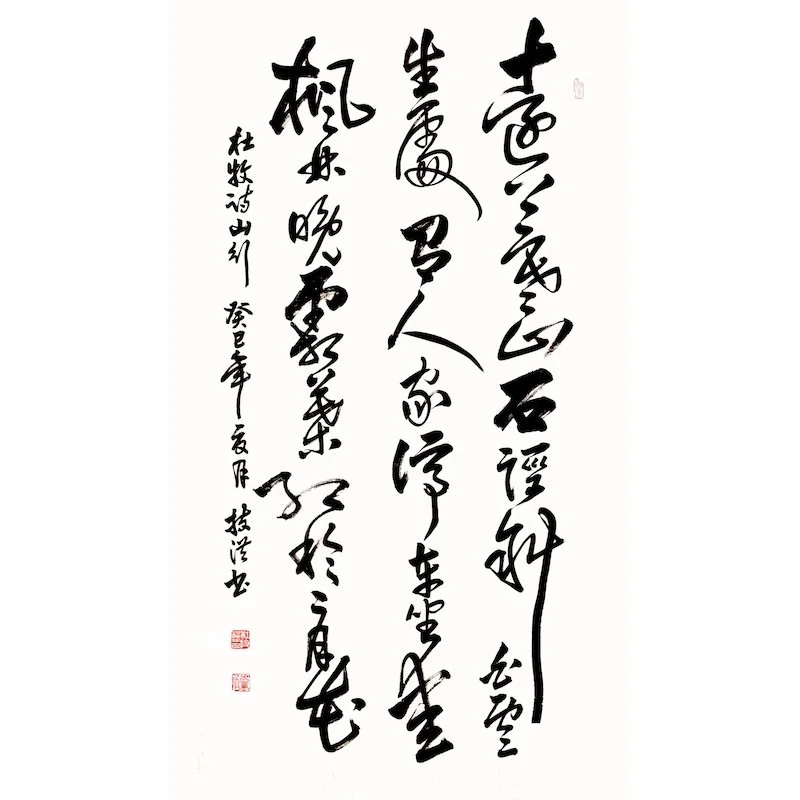 遠上寒山石徑斜白雲
生處有人家停車坐愛
楓林晚霜葉紅於二月花
杜牧诗山行 癸巳年夏月 洪书